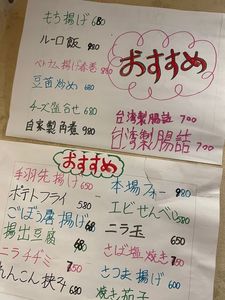 もち揚げ 680
ルーロ飯 980
ベトナム揚げ春巻 980
豆苗炒め 680
チーズ盛合せ 680
自家製角煮 980
おすすめ
台湾製腸詰 700
台湾製腸詰 700
おすすめ
手羽先揚げ 650
ポテトフライ
ごぼう唐揚げ
揚出豆腐
ニラチヂミ 750
れんこん挟み
本場フォー 980
エビせんべい
ニラ玉 650
さば塩焼き 750
さつま揚げ 600
焼き茄子